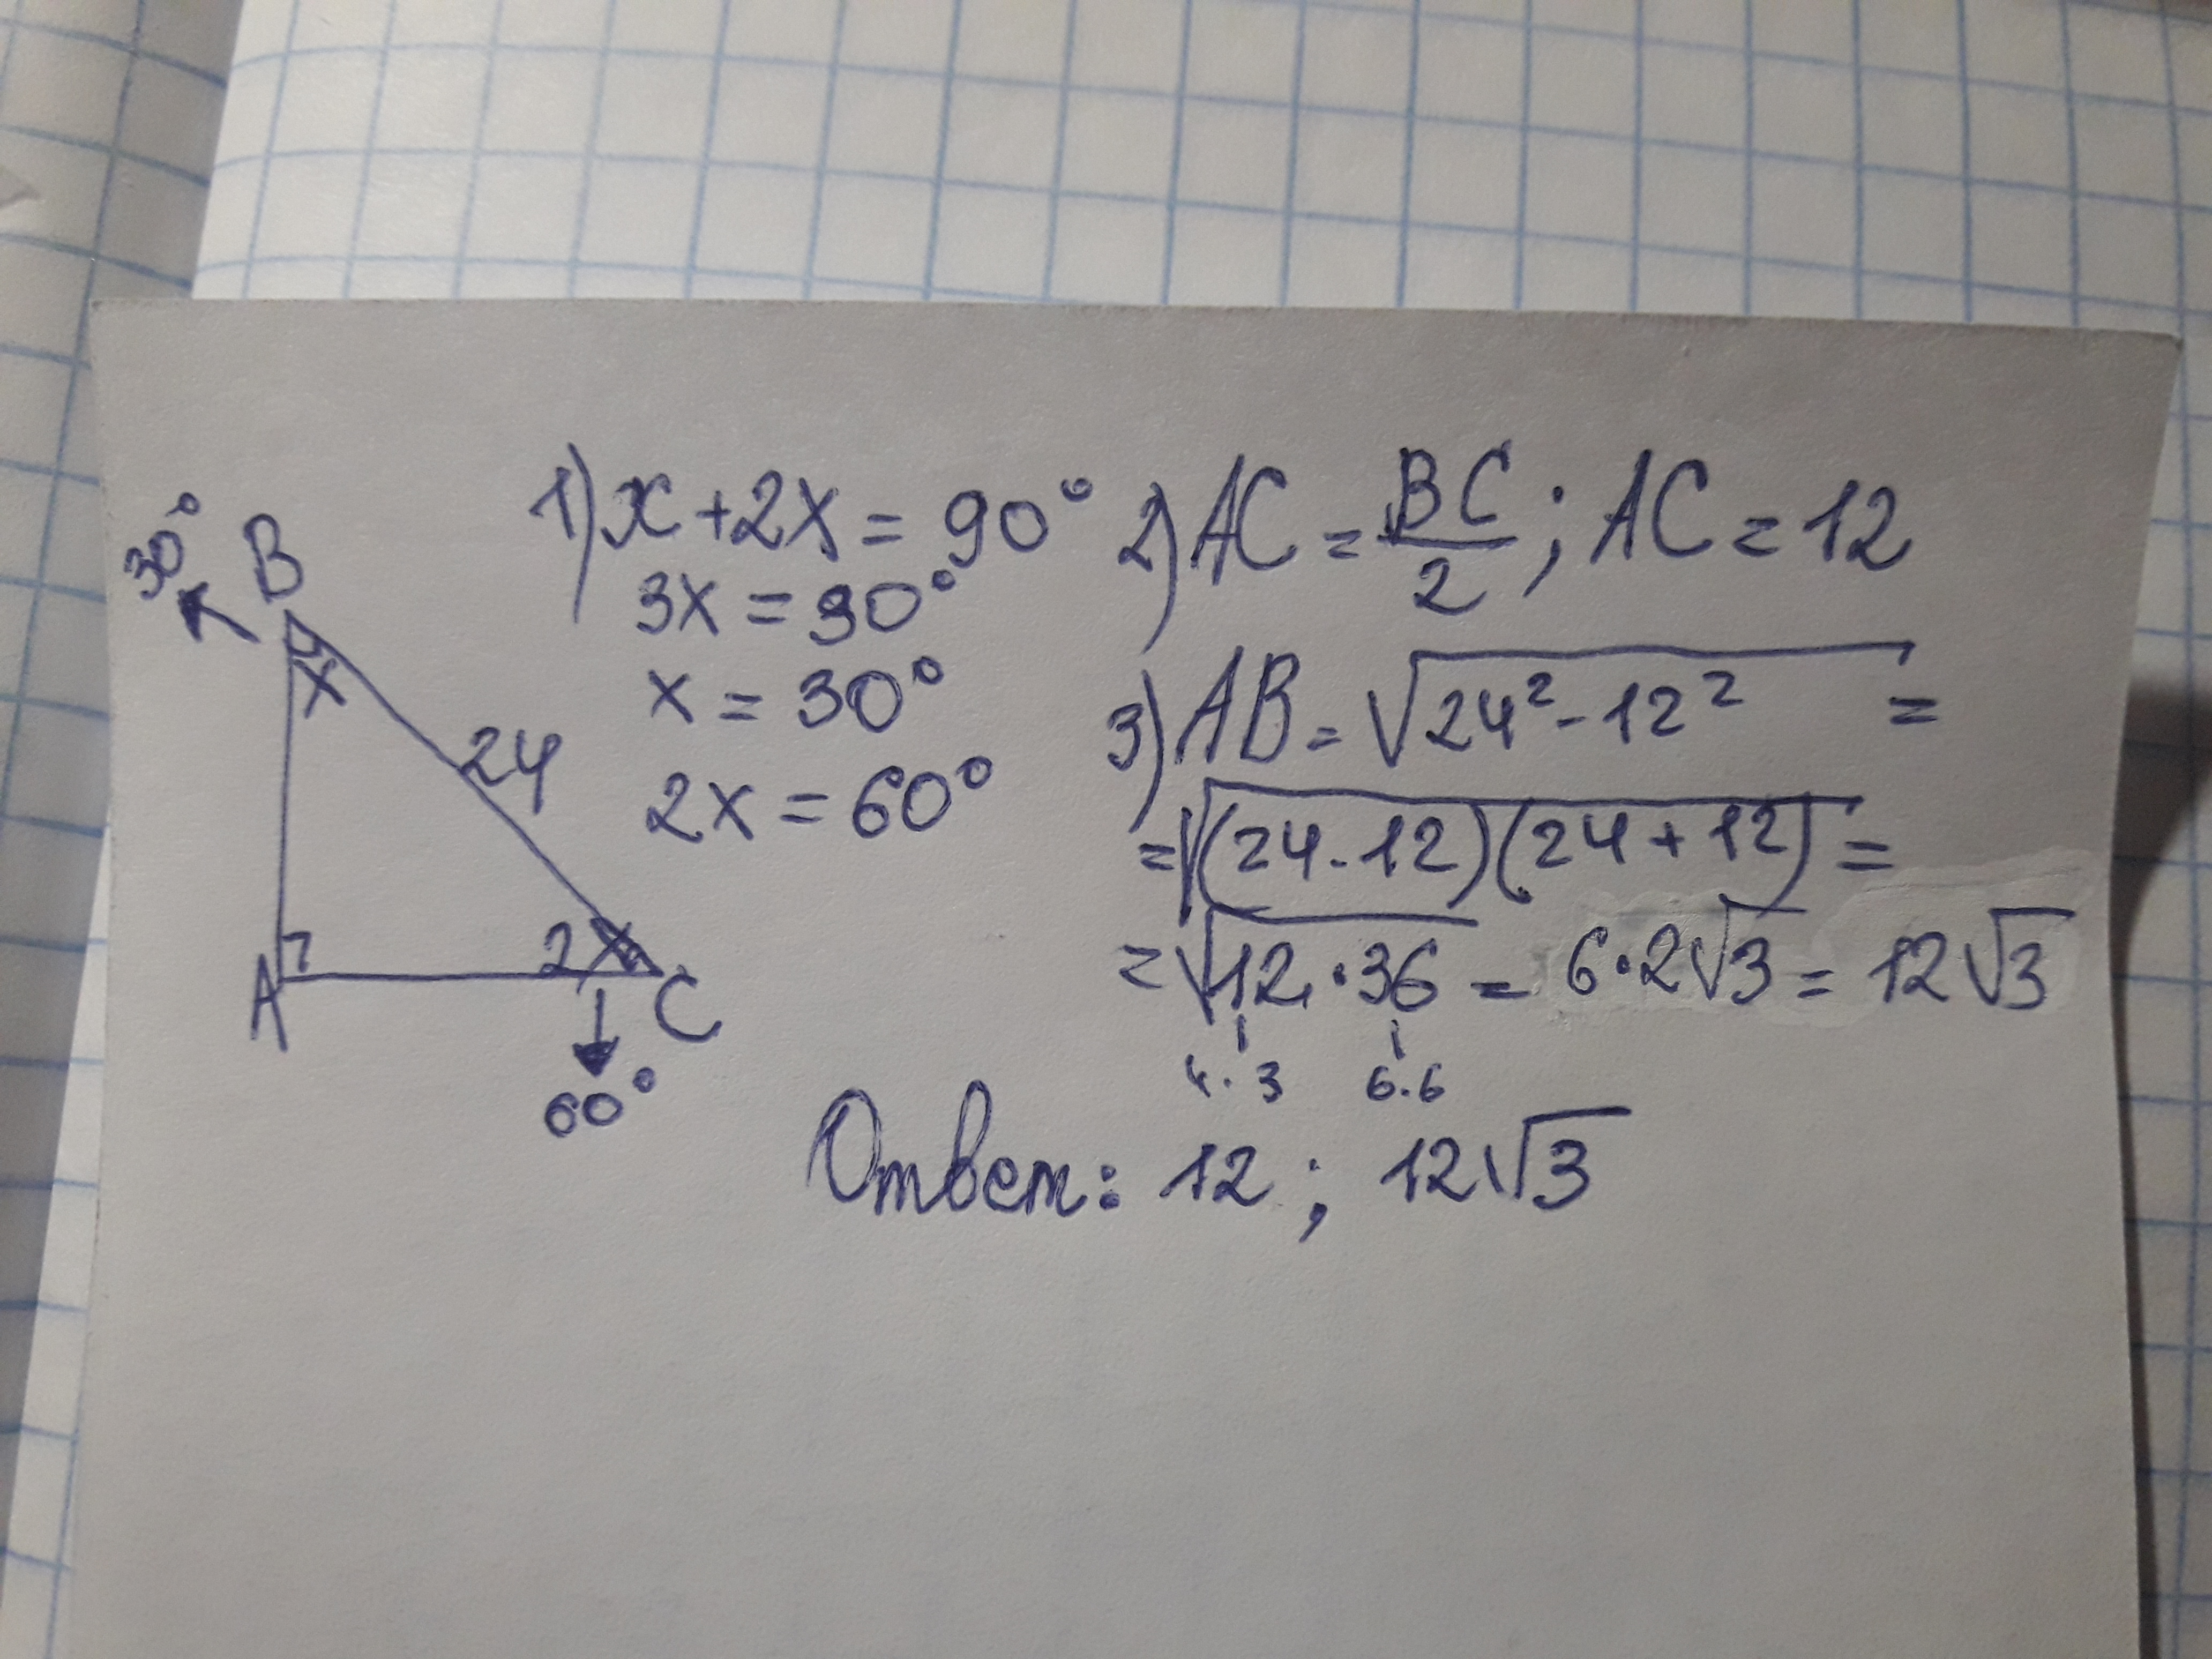 30°
B
x
24
A
2x
C
60°
1) x + 2x = 90°
3x = 90°
x = 30°
2x = 60°
2) AC = BC/2 ; AC = 12
3) AB = √(24² - 12²) =
= √((24 - 12)(24 + 12)) =
= √(12 · 36) = 6 · 2√3 = 12√3
4 · 3 6 · 6
Ответ: 12 ; 12√3